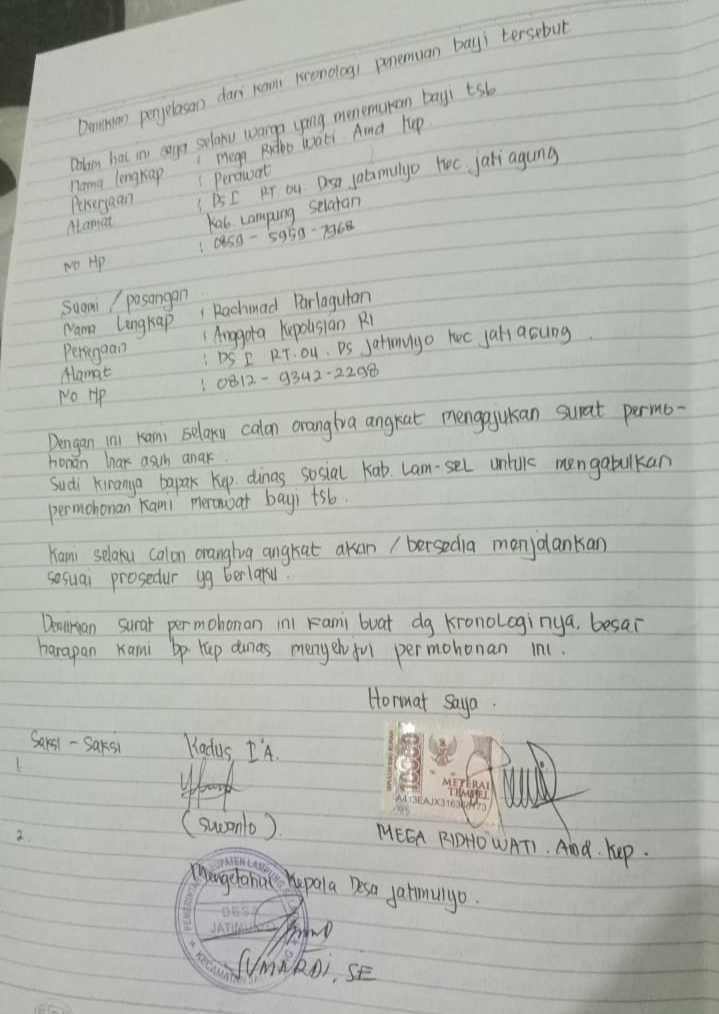 Demikian penjelasan dari kami kronologi penemuan bayi tersebut
Dalam hal ini saya selaku warga yang menemukan bayi tsb
nama lengkap : Mega Ridho Wati Amd Kep.
Pekerjaan : Perawat
Alamat : DS I RT 04 Desa jatimulyo kec. jati agung
kab Lampung selatan
No Hp : 0859 - 5959 - 7968
Suami / pasangan
Nama Lengkap : Rachmad Parlagutan
Pekerjaan : Anggota Kepolisian RI
Alamat : DS I RT.04. DS jatimulyo kec jati agung.
No Hp : 0812 - 9342 - 2298
Dengan ini kami selaku calon orangtua angkat mengajukan surat permo-
honan hak asuh anak.
Sudi kiranya bapak kep. dinas sosial kab. Lam-sel untuk mengabulkan
permohonan kami merawat bayi tsb.
Kami selaku calon orangtua angkat akan / bersedia menjalankan
sesuai prosedur yg berlaku.
Demikian surat permohonan ini kami buat dg kronologinya, besar
harapan kami bp. kep dinas menyetujui permohonan ini.
Hormat Saya.
Saksi - Saksi Kadus I A.
1.
10000
METERAI
TEMPEL
(Suwanto).
MEGA RIDHO WATI. Amd. Kep.
2.
Mengetahui Kepala Desa jatimulyo.
DESA
SUMARDI, SE